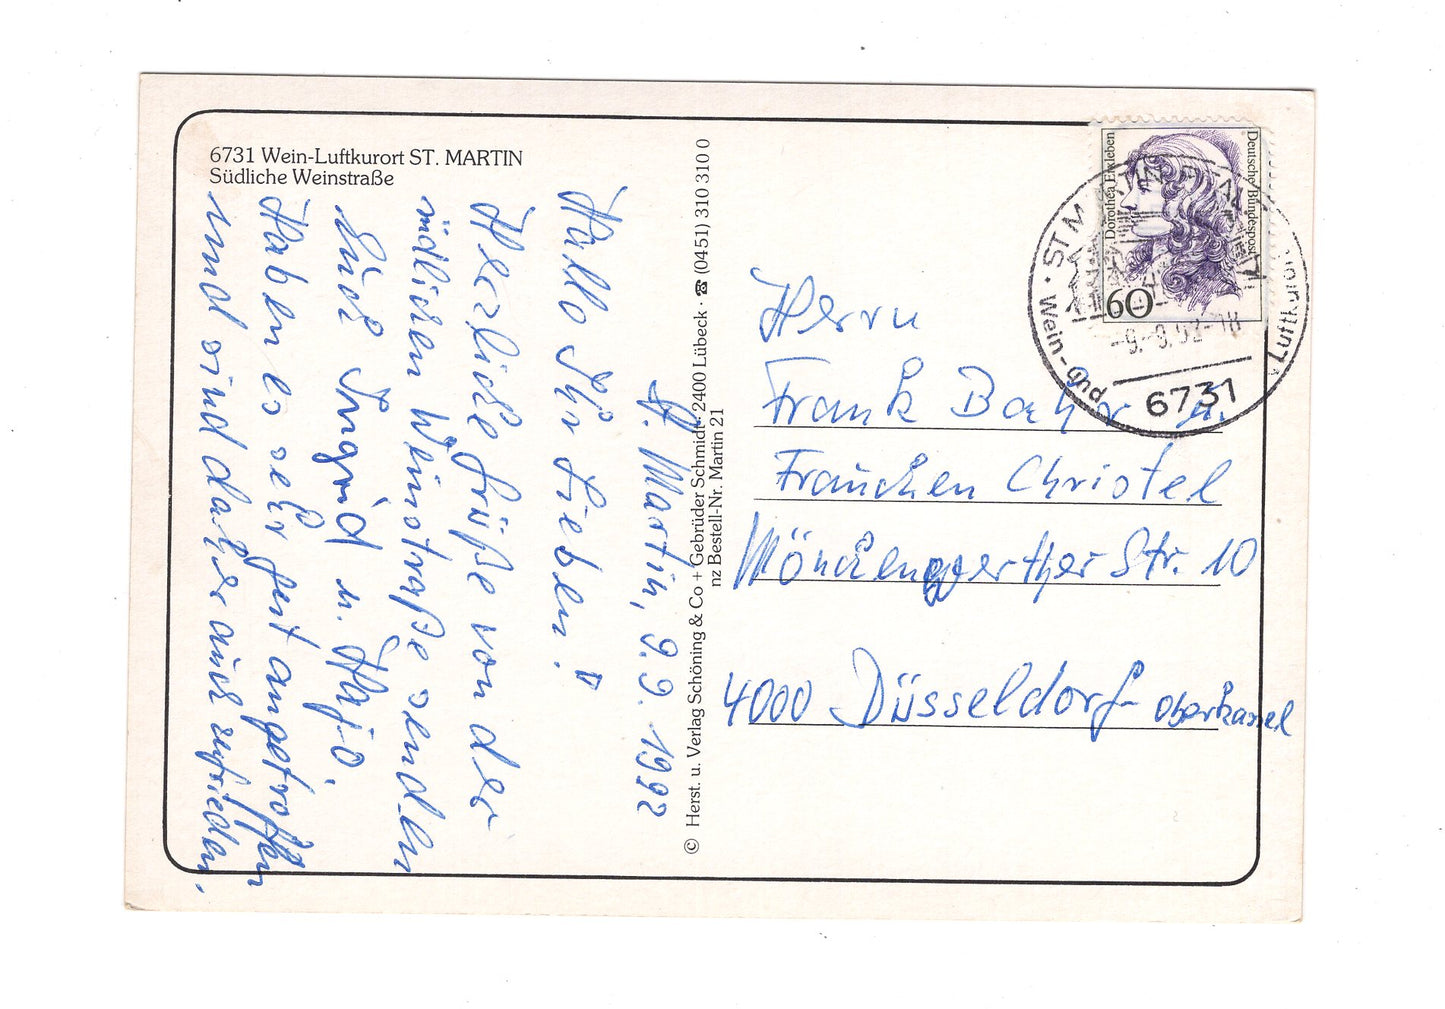 6731 Wein-Luftkurort ST. MARTIN
Südliche Weinstraße
St. Martin, 9.9. 1992
Hallo Ihr Lieben!
Herzliche Grüße von der
südlichen Weinstraße senden
Euch Ingrid u. Hajo.
Haben es sehr gut angetroffen
und sind daher auch zufrieden.
© Herst. u. Verlag Schöning & Co + Gebrüder Schmidt · 2400 Lübeck · ☎ (0451) 310 310 0
nz Bestell-Nr. Martin 21
Deutsche Bundespost
Dorothea Erxleben
60
ST MARTIN
Wein- und Luft
6731
Herrn
Frank u.
Frauchen Christel
Str. 10
4000 Düsseldorf-Oberkassel